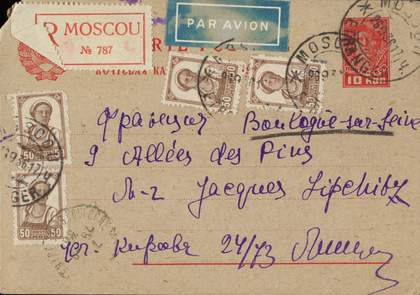 R MOSCOU
№ 787
PAR AVION
MOSCOU
10 КОП
50
50
50
50
Франция Boulogne-sur-Seine
9 Allées des Pins
M-r Jacques Lipchitz
ул. Кирова 24/73